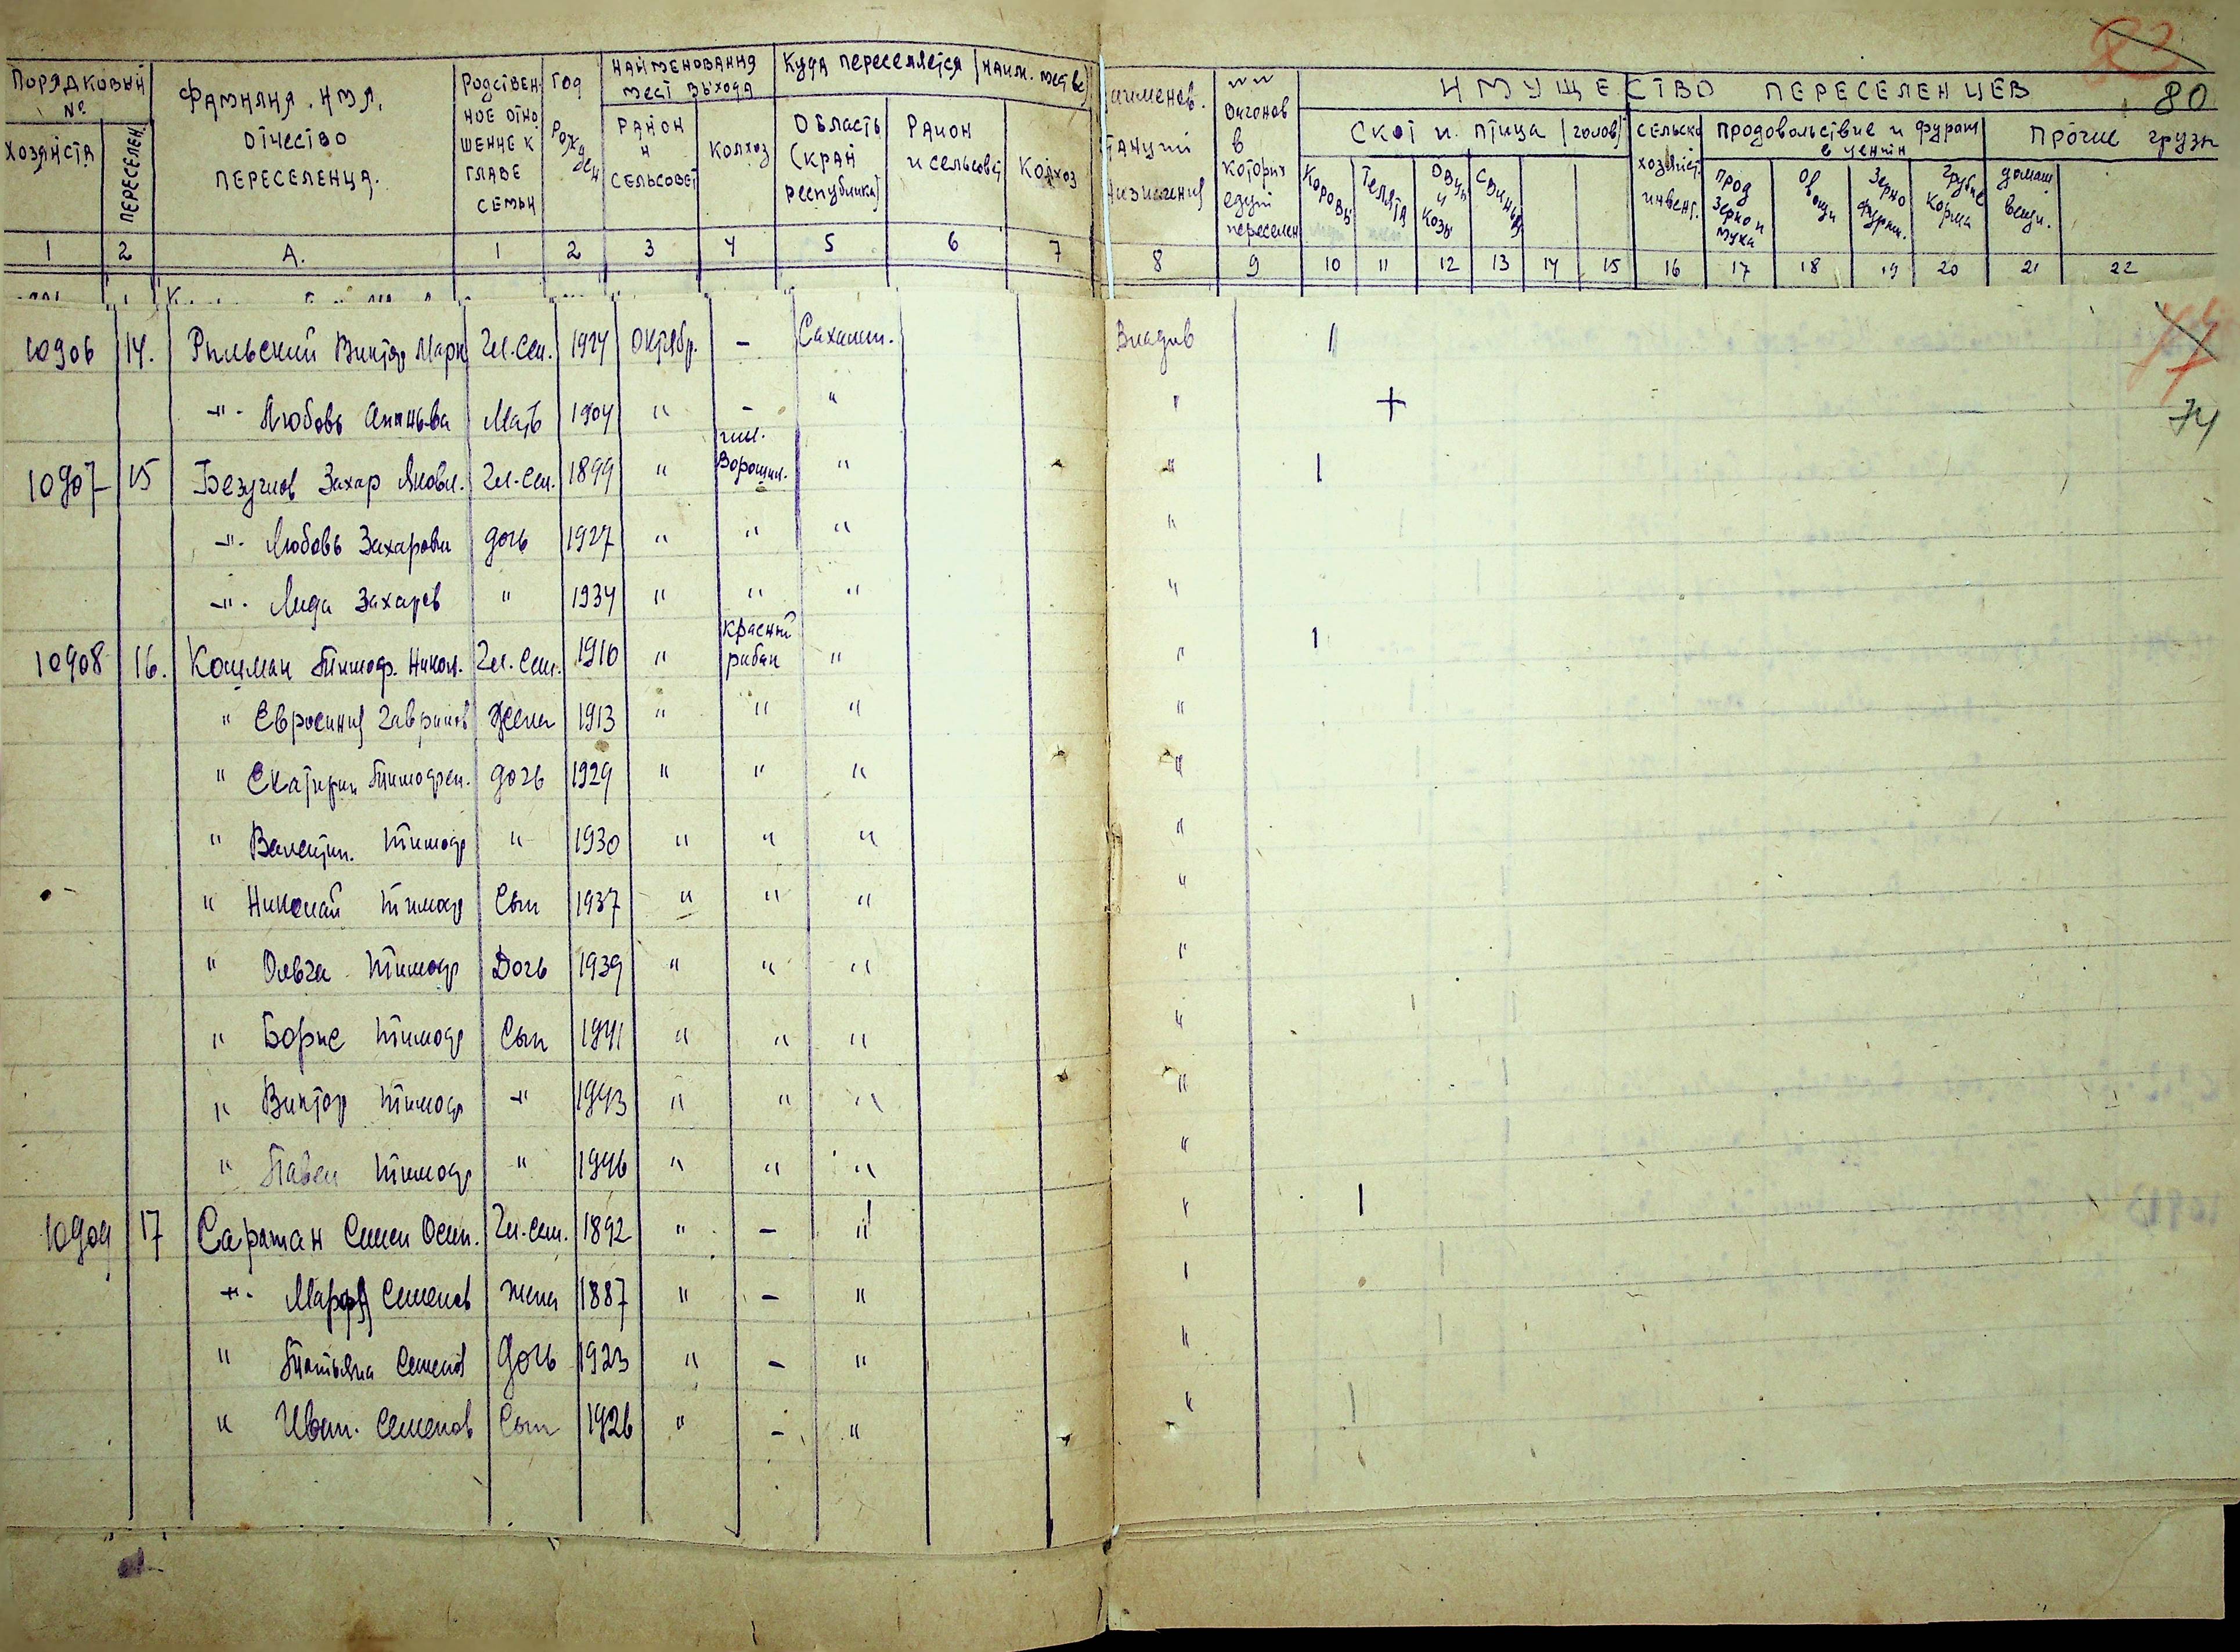 82
80
Порядковый №
Фамилия. имя. отчество переселенца.
Родствен ное отно шение к главе семьи
Год рожден
Наименования мест выхода
Куда переселяется (наим. места)
именов.
№№ вагонов в которых едут переселен
ИМУЩЕСТВО ПЕРЕСЕЛЕНЦЕВ
хозяйста
переселен.
район и сельсовет
колхоз
область (край республика)
район и сельсовет
колхоз
Скот и птица (голов)
сельско хозяйст. инвент.
продовольствие и фураж в центн
прочие грузы
коровы
телята
овцы и козы
свинья
прод зерно и мука
овощи
зерно фураж.
грубые корма
домаш вещи.
1 2 А. 1 2 3 4 5 6 7 8 9 10 11 12 13 14 15 16 17 18 19 20 21 22
10906 14. Рильский Виктор Марк Гл. Сем. 1924 Октябр. - Сахалин. Владив 1
-"- Любовь Ананьева Мать 1904 " - " " +
74
10907 15 Безуглов Захар Яковл. Гл. Сем. 1899 " им. Ворошил. " " 1
-"- Любовь Захаровн дочь 1927 " " " "
-"- Лида Захаров " 1934 " " " "
10908 16. Кошман Тимоф. Никол. Гл. Сем. 1910 " красный рибак " " 1
" Евросиния Гаврилов Жена 1913 " " " "
" Екатирин Тимофеи. дочь 1929 " " " "
" Валентин. Тимоф " 1930 " " " "
" Николай Тимоф Сын 1937 " " " "
" Ольга Тимоф Дочь 1939 " " " "
" Борис Тимоф Сын 1941 " " " "
" Виктор Тимоф -"- 1943 " " " "
" Павел Тимоф " 1946 " " " "
10909 17 Саратан Семен Осип. Гл. Сем. 1892 " - " " 1
-"- Марфа Семенов жена 1887 " - " "
" Татьяна Семенов Дочь 1923 " - " "
" Иван. Семенов Сын 1926 " - " "